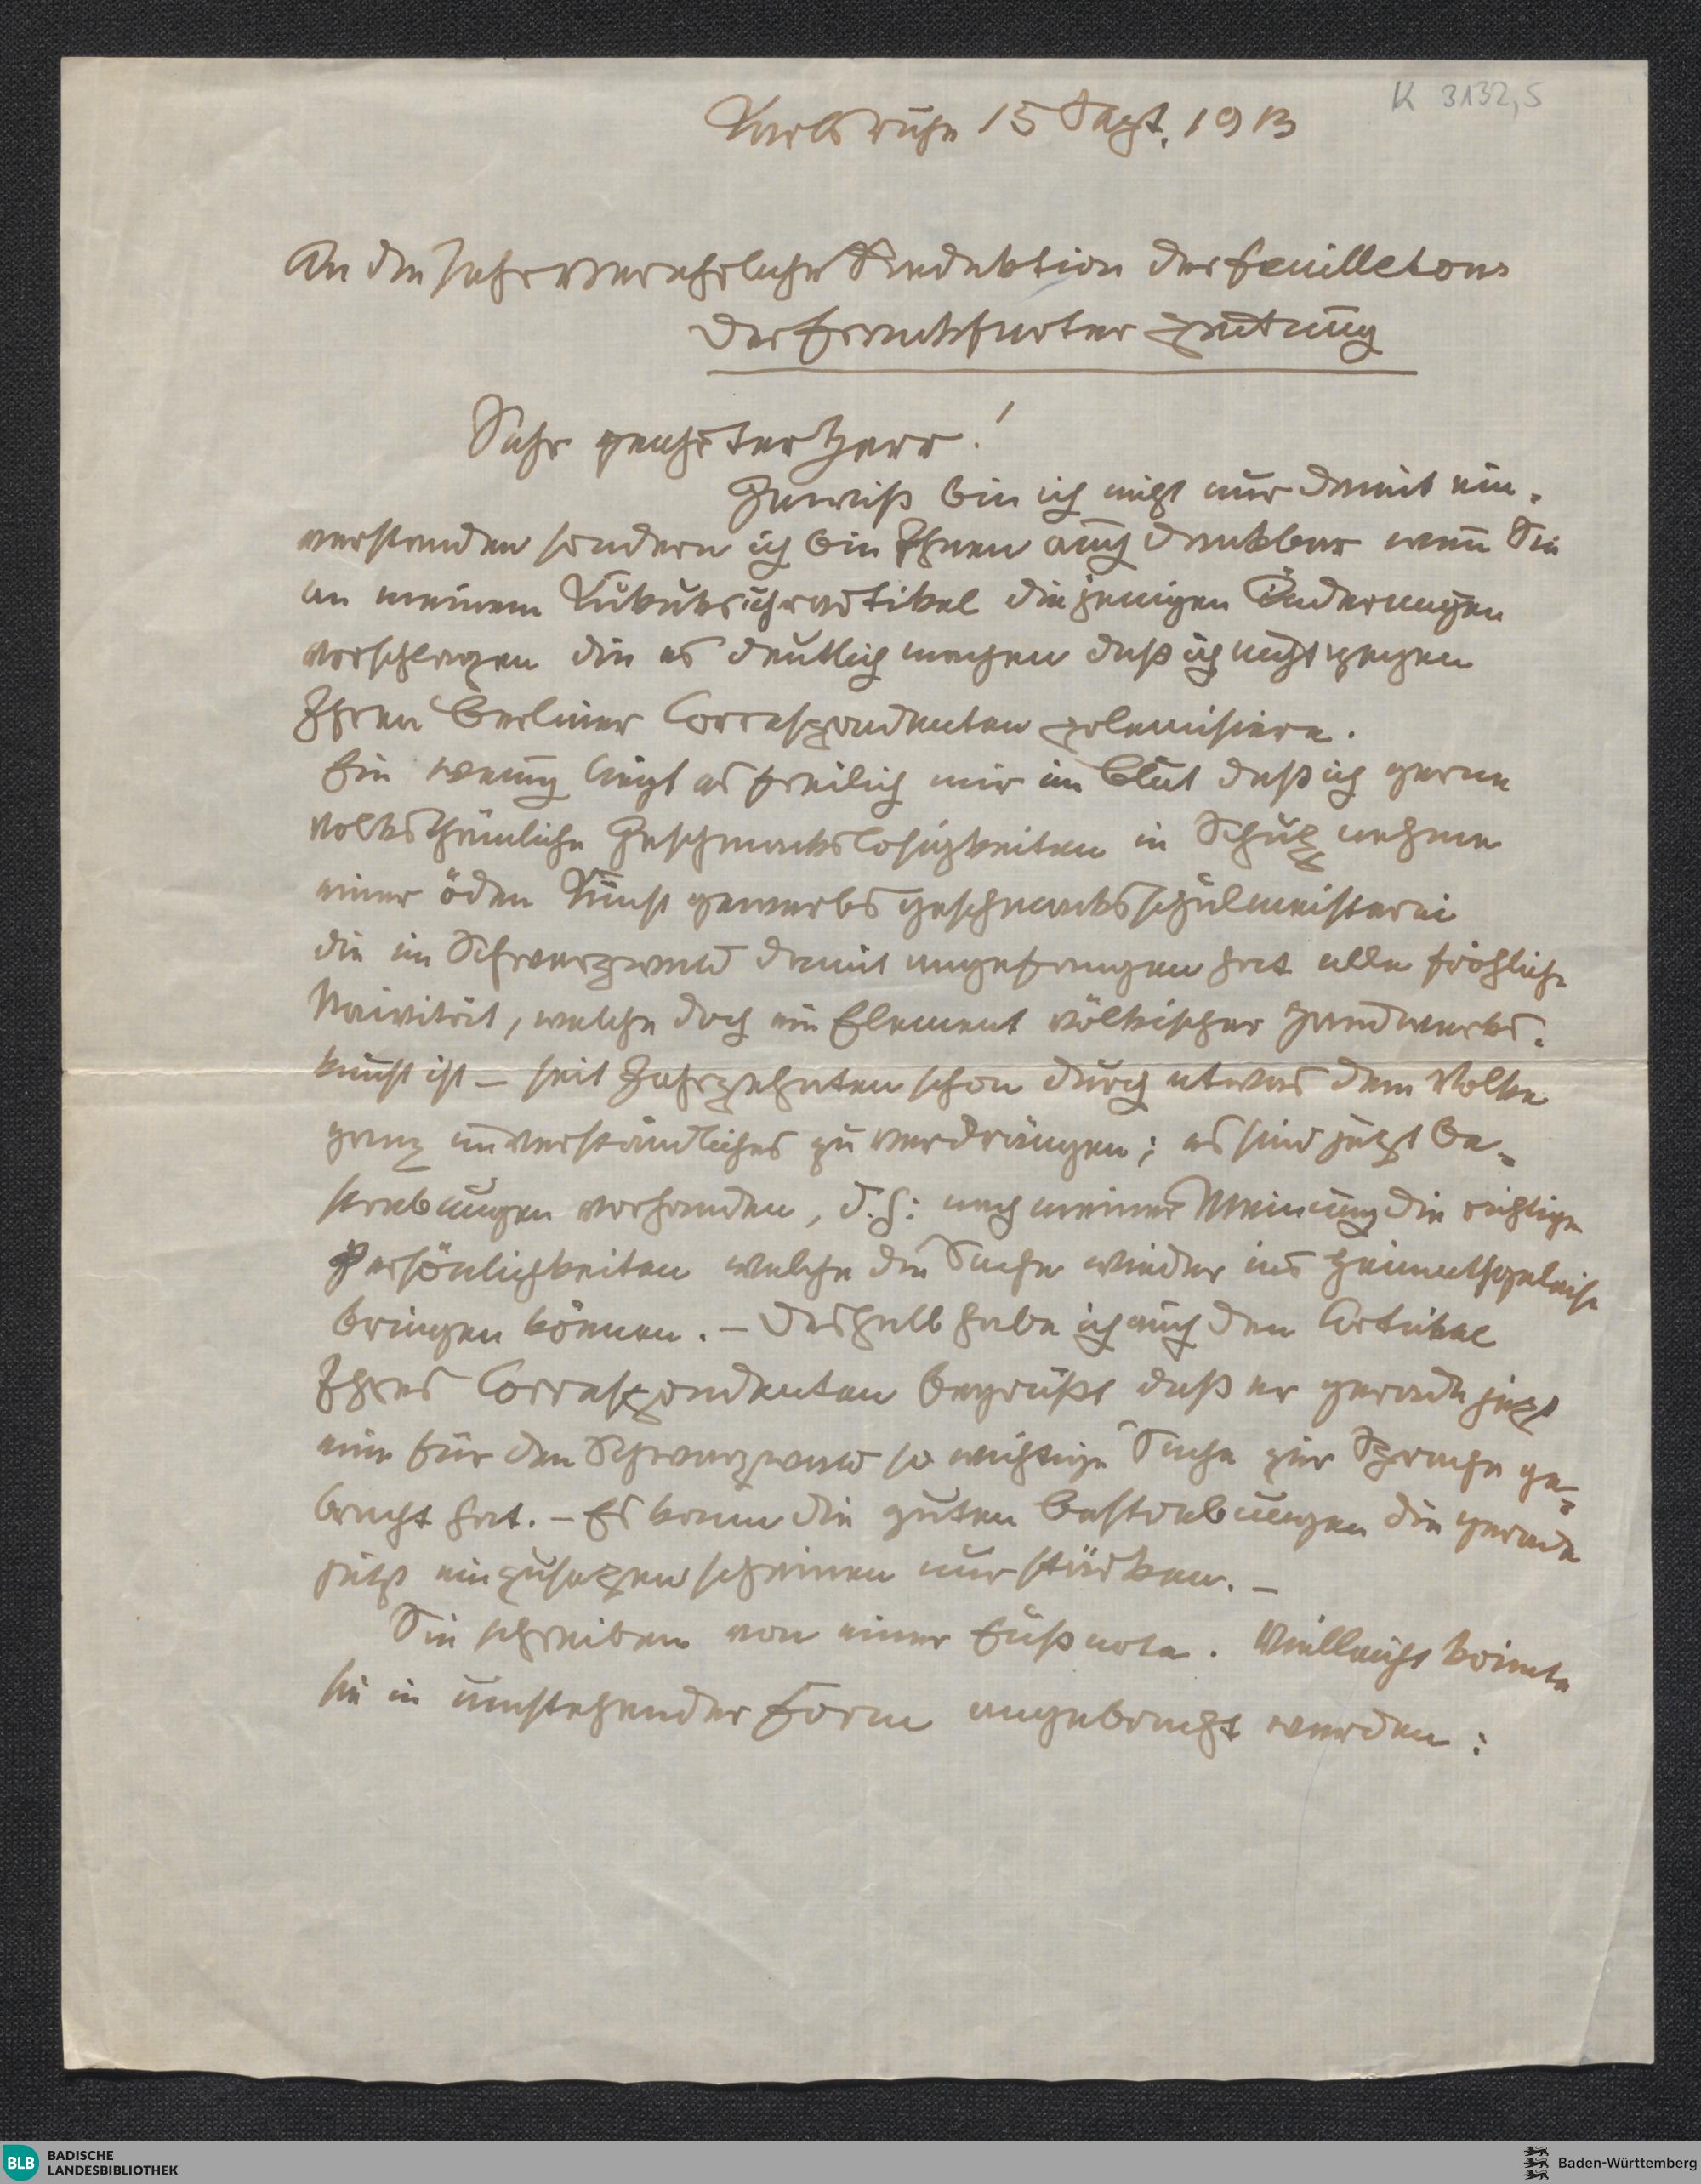 K 3132,5
Karlsruhe 15 Sept. 1913
An die sehr verehrliche Redaktion des Feuilletons
der Frankfurter Zeitung
Sehr geehrter Herr!
Gewiß bin ich nicht nur damit ein-
verstanden sondern ich bin Ihnen auch dankbar wenn Sie
an meinem Kukuksuhrartikel diejenigen Änderungen
vorschlagen die es deutlich machen daß ich nicht gegen
Ihren Berliner Correspondenten polemisiere.
Ein wenig liegt es freilich mir im Blut daß ich gerne
volksthümliche Geschmackslosigkeiten in Schutz nehme
einer öden Kunstgewerbsgeschmacksschulmeisterei
die im Schwarzwald damit angefangen hat alle fröhliche
Naivität, welche doch ein Element völkischer Handwerks-
kunst ist – seit Jahrzehnten schon durch etwas dem Volke
ganz unverständliches zu verdrängen; es sind jetzt Be-
strebungen vorhanden, d.h: nach meiner Meinung die richtigen
Persönlichkeiten welche die Sache wieder ins Heimathgeleise
bringen können. – Deshalb habe ich auch den Artikel
Ihres Correspondenten begrüßt daß er gerade jetzt
eine für den Schwarzwald so wichtige Sache zur Sprache ge-
bracht hat. – Es kann die guten Bestrebungen die gerade
jetzt einzusetzen scheinen nur stärken. –
Sie schreiben von einer Fußnote. Vielleicht könnte
sie in umstehender Form angebracht werden:
BLB BADISCHE
LANDESBIBLIOTHEK
Baden-Württemberg